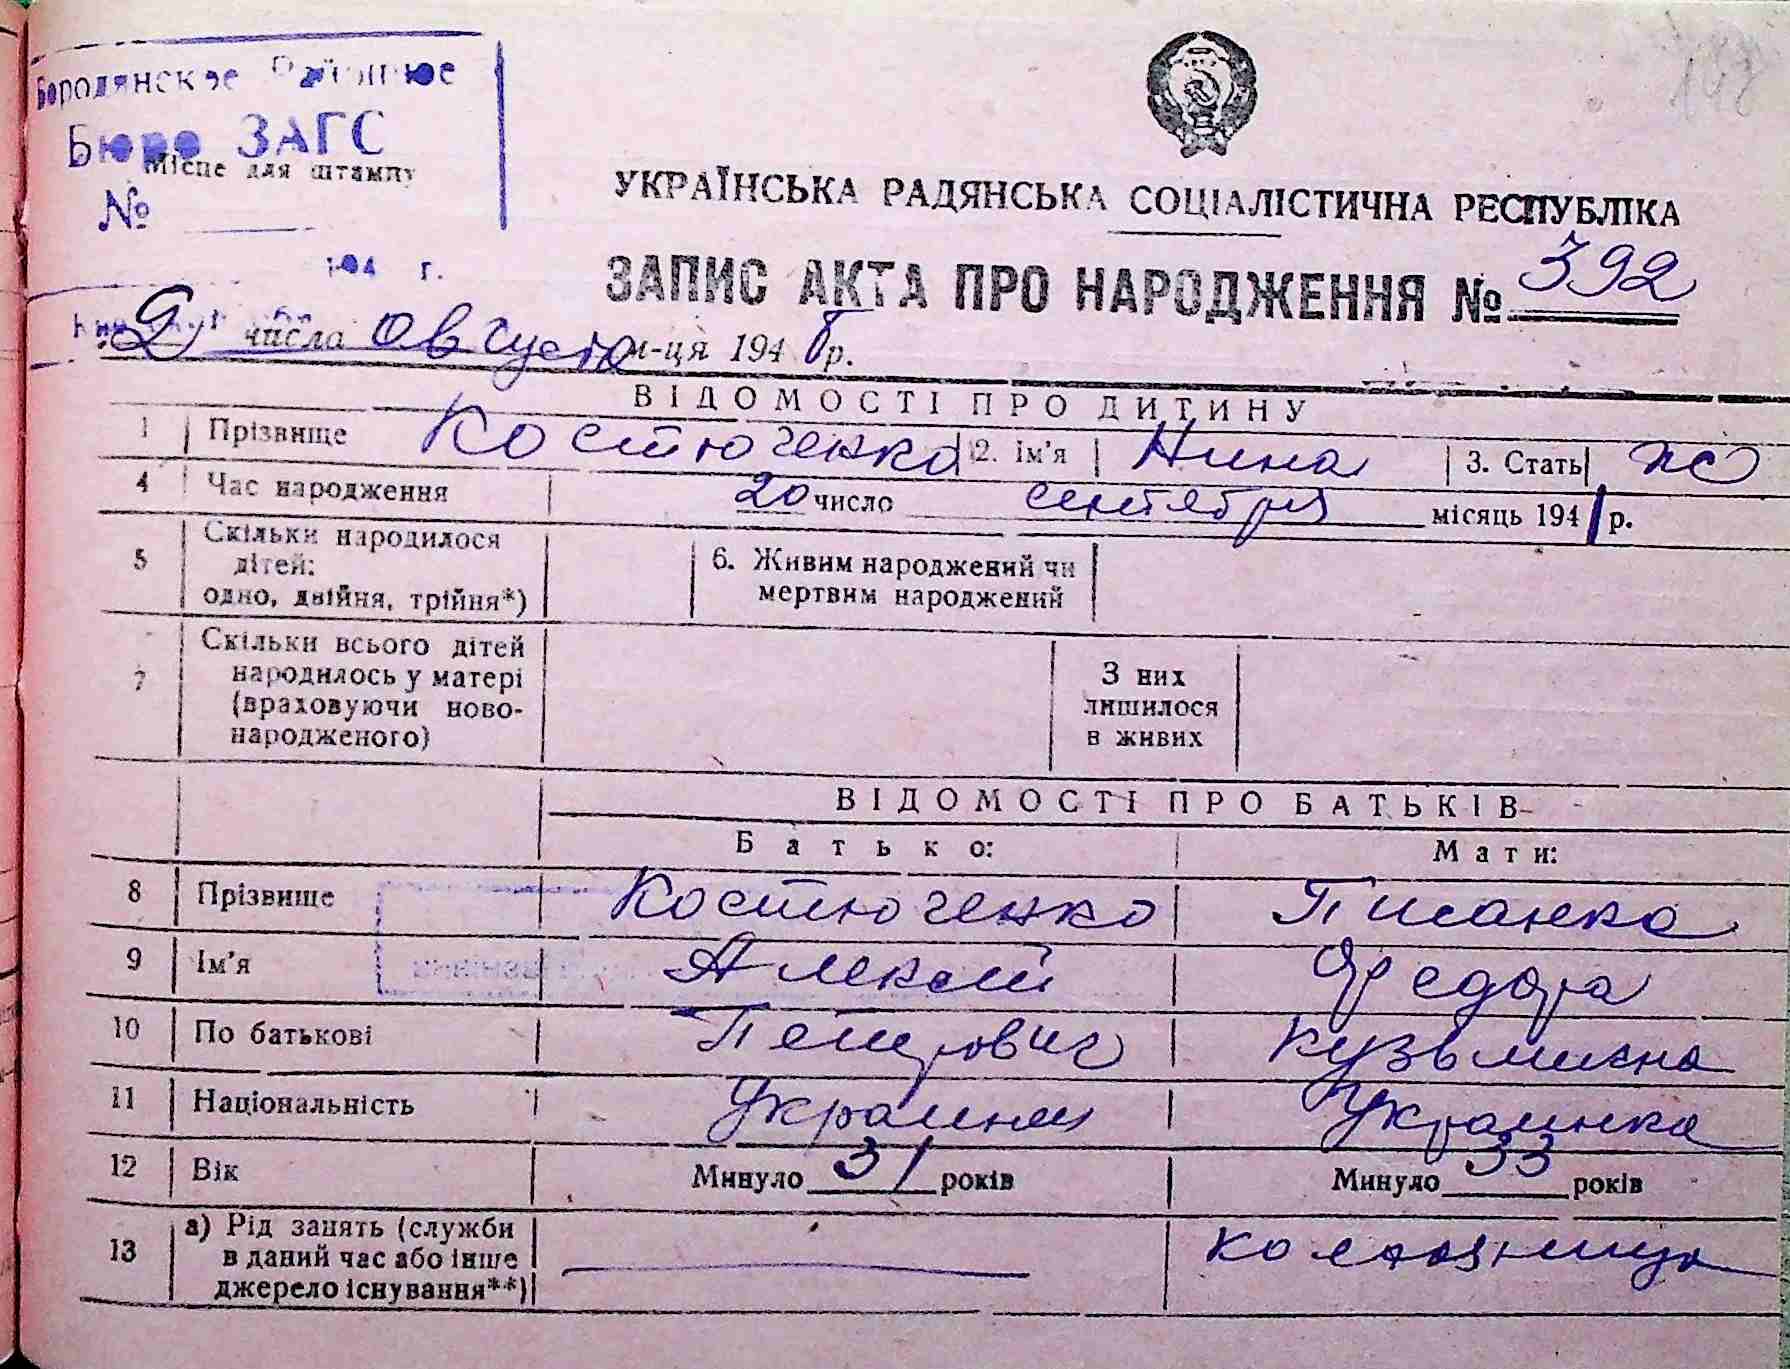 Бородянское Районное
Бюро ЗАГС
Місце для штампу
№
194 г.
УКРАЇНСЬКА РАДЯНСЬКА СОЦІАЛІСТИЧНА РЕСПУБЛІКА
ЗАПИС АКТА ПРО НАРОДЖЕННЯ № 392
9 числа Августа м-ця 194 р.
ВІДОМОСТІ ПРО ДИТИНУ
1 Прізвище Костюченко 2. Ім'я Нина 3. Стать
4 Час народження 20 число сентября місяць 1941 р.
5 Скільки народилося дітей: одно, двійня, трійня*) 6. Живим народжений чи мертвим народжений
7 Скільки всього дітей народилось у матері (враховуючи ново-народженого) З них лишилося в живих
ВІДОМОСТІ ПРО БАТЬКІВ
Батько: Мати:
8 Прізвище Костюченко Писанка
9 Ім'я Алексей Федора
10 По батькові Петрович Кузьминна
11 Національність Украинец Украинка
12 Вік Минуло 31 років Минуло 33 років
13 а) Рід занять (служби в даний час або інше джерело існування**) колхозница